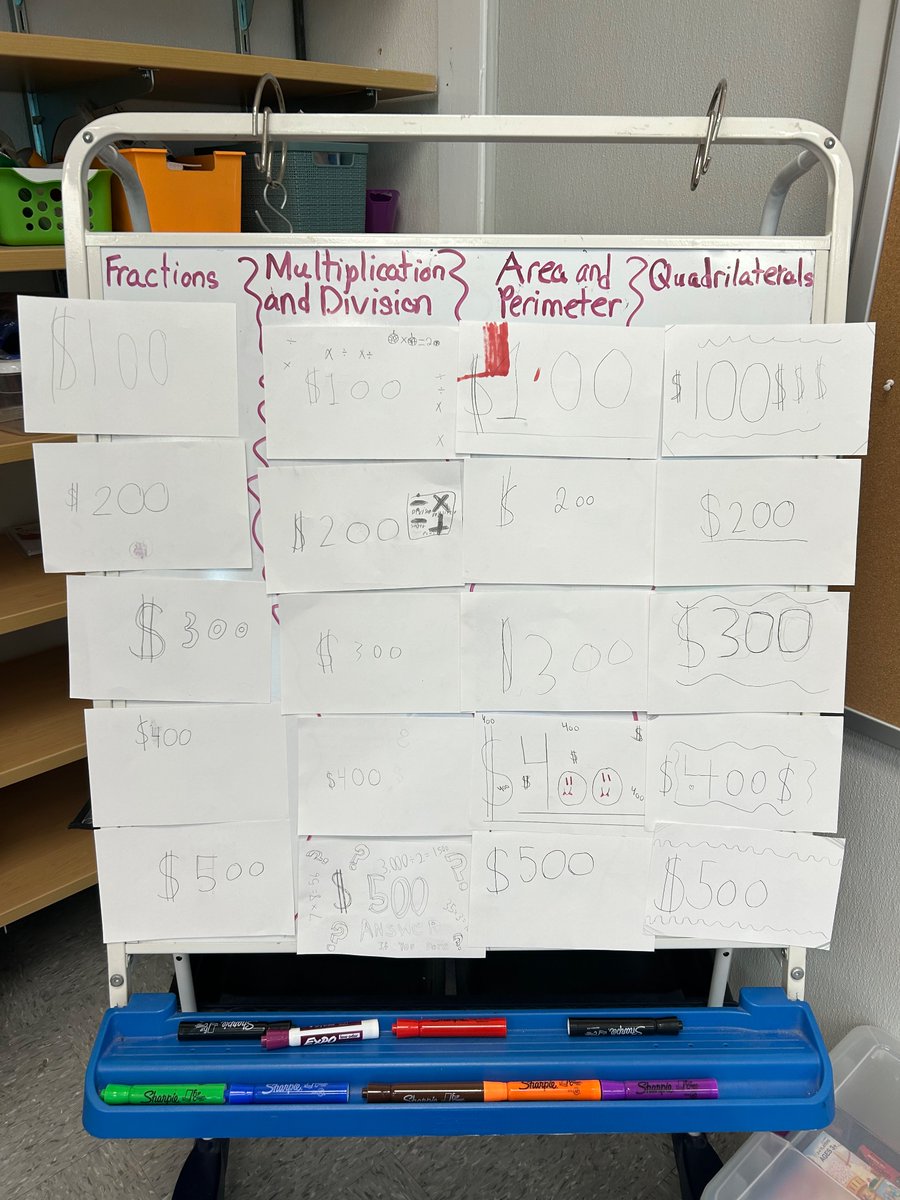 Fractions
Multiplication
and Division
Area and
Perimeter
Quadrilaterals
$100
$100
$1.00
$100$$$
$200
$200
$200
$200
$300
$300
$300
$300
$400
$400
400
400
$
$
$4
$
400
$400$
$500
3,000÷2=1500
7×8=56
$500
ANSWER
If You Dare
$500
$500
Sharpie
EXPO
Sharpie
Sharpie
Sharpie
Sharpie
Sharpie
Sharpie